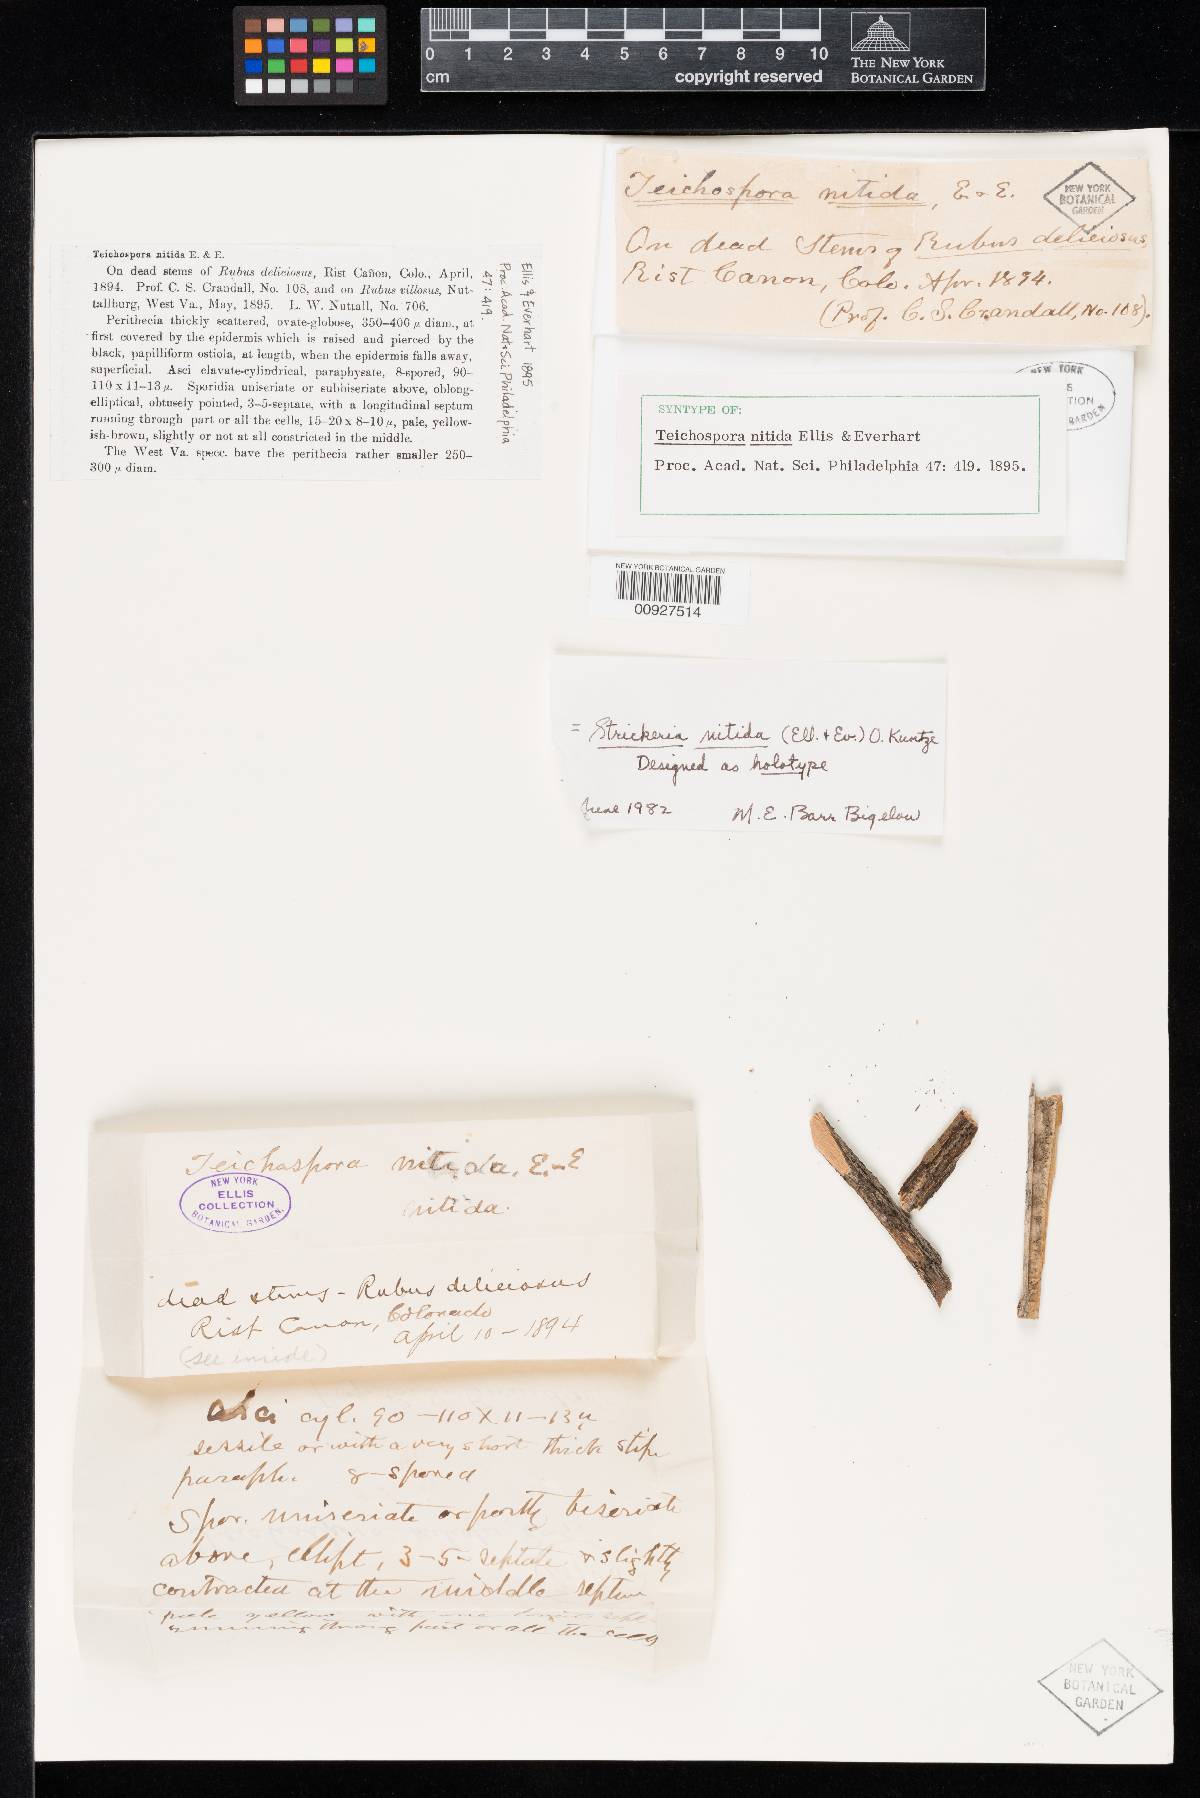 0 1 2 3 4 5 6 7 8 9 10
cm
copyright reserved
THE NEW YORK
BOTANICAL GARDEN
Teichospora nitida, E. & E.
NEW YORK
BOTANICAL
GARDEN
On dead Stems of Rubus deliciosus,
Rist Canon, Colo. Apr. 1894.
(Prof. C. S. Crandall, No. 108).
Teichospora nitida E. & E.
On dead stems of Rubus deliciosus, Rist Cañon, Colo., April,
1894. Prof. C. S. Crandall, No. 108, and on Rubus villosus, Nut-
tallburg, West Va., May, 1895. L. W. Nuttall, No. 706.
Perithecia thickly scattered, ovate-globose, 350–400 µ diam., at
first covered by the epidermis which is raised and pierced by the
black, papilliform ostiola, at length, when the epidermis falls away,
superficial. Asci clavate-cylindrical, paraphysate, 8-spored, 90–
110 x 11–13 µ. Sporidia uniseriate or subbiseriate above, oblong-
elliptical, obtusely pointed, 3–5-septate, with a longitudinal septum
running through part or all the cells, 15–20 x 8–10 µ, pale, yellow-
ish-brown, slightly or not at all constricted in the middle.
The West Va. specc. have the perithecia rather smaller 250–
300 µ diam.
Ellis & Everhart 1895
Proc. Acad. Nat. Sci. Philadelphia
47: 419.
NEW YORK
S
TION
GARDEN
SYNTYPE OF:
Teichospora nitida Ellis & Everhart
Proc. Acad. Nat. Sci. Philadelphia 47: 419. 1895.
NEW YORK BOTANICAL GARDEN
00927514
= Strickeria nitida (Ell. & Ev.) O. Kuntze
Designed as holotype
June 1982 M. E. Barr Bigelow
Teichospora nitida, E. & E
nitida.
NEW YORK
ELLIS
COLLECTION
BOTANICAL GARDEN.
dead stems - Rubus deliciosus
Rist Canon, Colorado
April 10 - 1894
(see inside)
Asci cyl. 90 - 110 x 11 - 13 µ
sessile or with a very short thick stipe
paraph. 8-spored
Spor. uniseriate or partly biseriate
above, ellipt, 3-5-septate & slightly
contracted at the middle septum
pale yellow with one longit. sept
running throug part or all the cells
NEW YORK
BOTANICAL
GARDEN